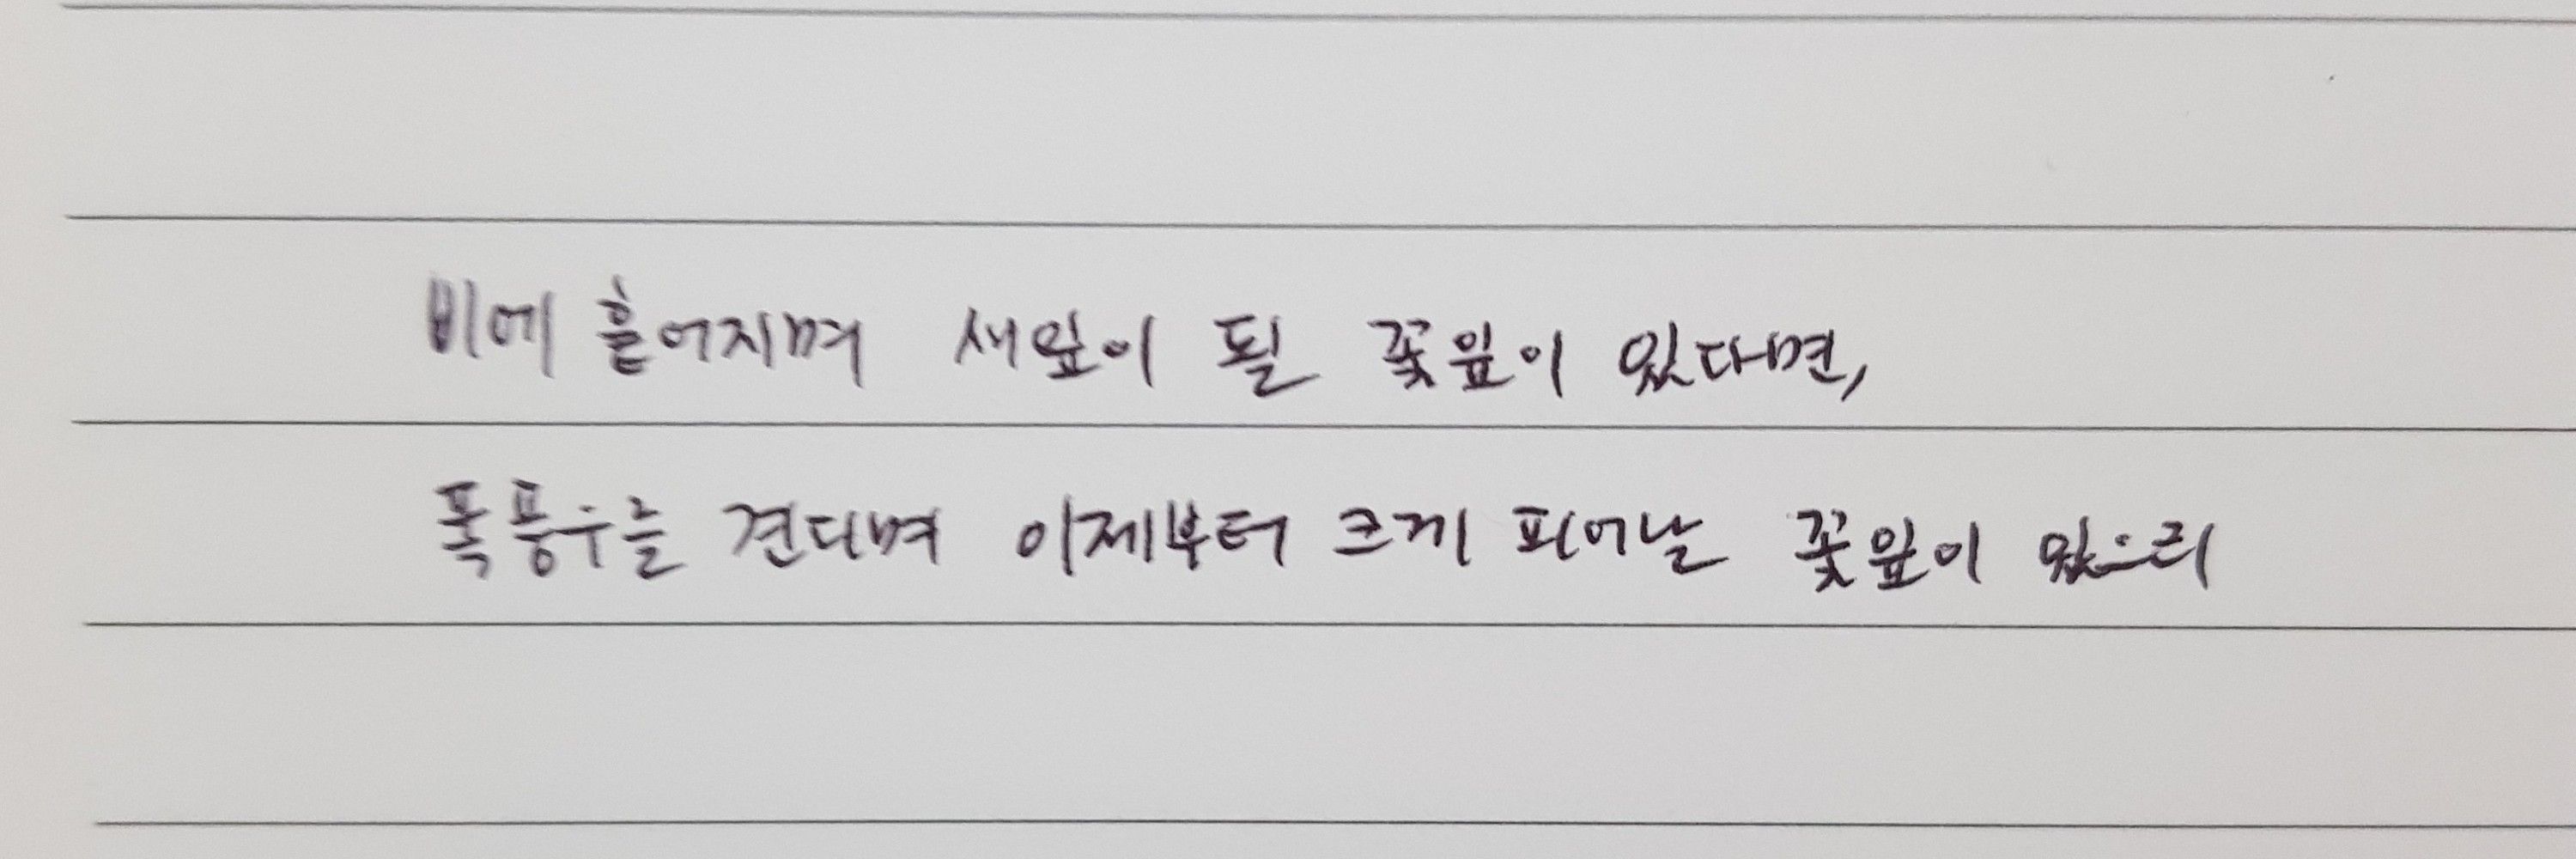 비에 흩어지며 새잎이 될 꽃잎이 있다면,
폭풍우를 견디며 이제부터 크게 피어날 꽃잎이 있으리